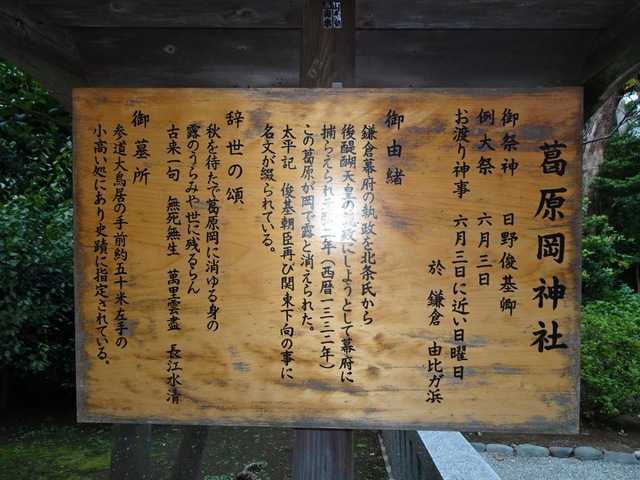 葛原岡神社
御祭神 日野俊基卿
例大祭 六月三日
お渡り神事 六月三日に近い日曜日
於 鎌倉 由比ガ浜
御由緒
鎌倉幕府の執政を北条氏から
後醍醐天皇の親政にしようとして幕府に
捕らえられ元弘二年(西暦一三三二年)
この葛原が岡で露と消えられた。
太平記 俊基朝臣再び関東下向の事に
名文が綴られている。
辞世の頌
秋を待たで葛原岡に消ゆる身の
露のうらみや世に残るらん
古来一句 無死無生 萬里雲盡 長江水清
御墓所
参道大鳥居の手前約五十米左手の
小高い処にあり史蹟に指定されている。